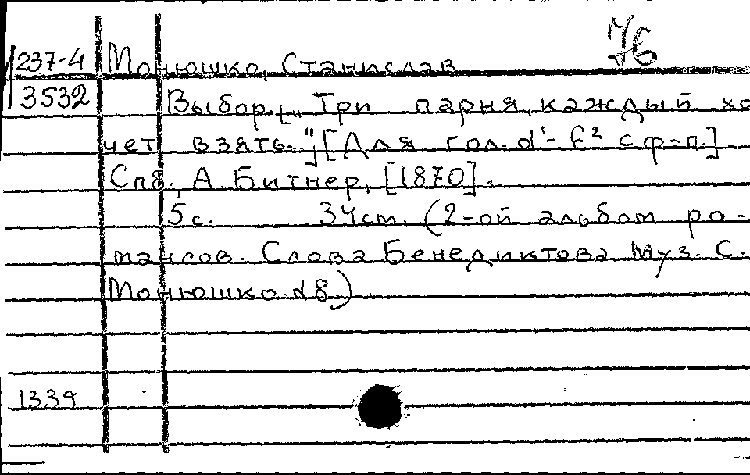 76
237-4 Монюшко, Станислав
3532 Выбор. „Три парня, каждый хо-
чет взять.“ [Для гол. d¹- f² с ф-п.]
Спб., А. Битнер, [1870].
5с. 34см. (2-ой альбом ро-
мансов. Слова Бенедиктова Муз. С.
Монюшко №8)
1339